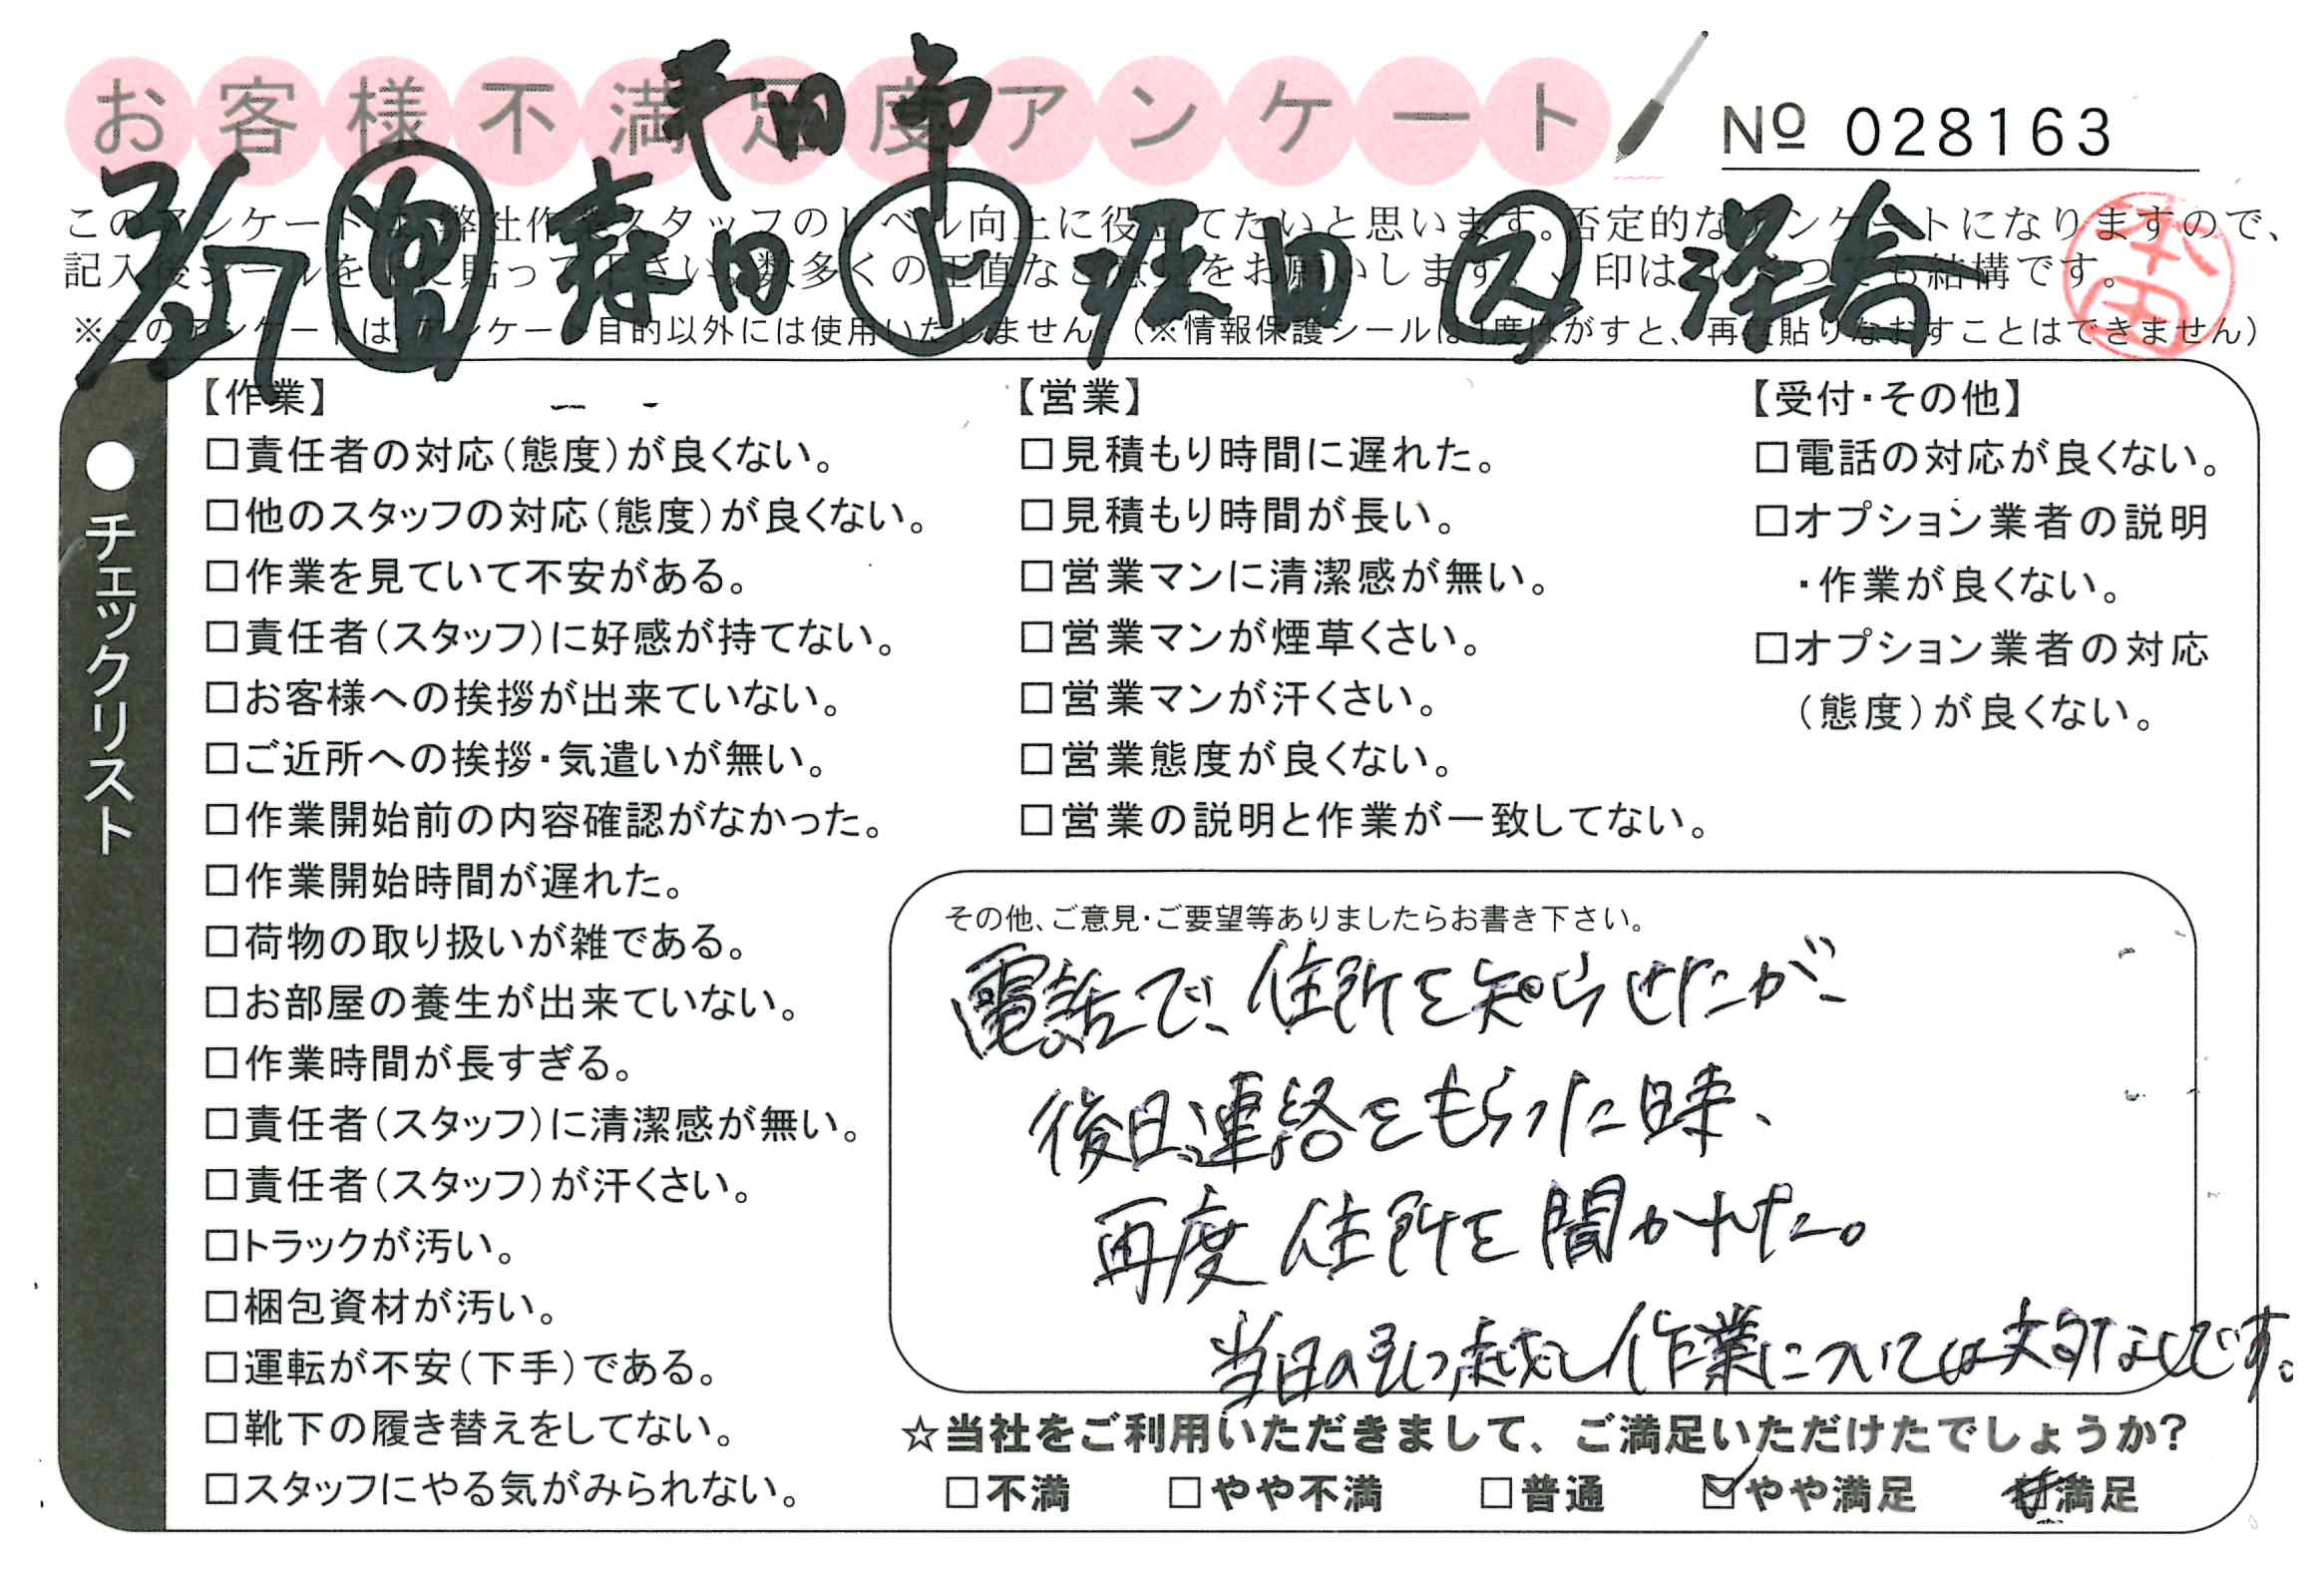 お客様不満足度アンケート
№ 028163
このアンケートは、弊社作業スタッフのレベル向上に役立てたいと思います。否定的なアンケートになりますので、
記入後シールを上に貼って下さい。数多くの正直なご意見をお願いします。✓印はいくつでも結構です。
※このアンケートは、アンケート目的以外には使用いたしません。(※情報保護シールは1度はがすと、再度貼りなおすことはできません)
市
森田 上 班田 積合
本田
●チェックリスト
【作業】
□責任者の対応(態度)が良くない。
□他のスタッフの対応(態度)が良くない。
□作業を見ていて不安がある。
□責任者(スタッフ)に好感が持てない。
□お客様への挨拶が出来ていない。
□ご近所への挨拶・気遣いが無い。
□作業開始前の内容確認がなかった。
□作業開始時間が遅れた。
□荷物の取り扱いが雑である。
□お部屋の養生が出来ていない。
□作業時間が長すぎる。
□責任者(スタッフ)に清潔感が無い。
□責任者(スタッフ)が汗くさい。
□トラックが汚い。
□梱包資材が汚い。
□運転が不安(下手)である。
□靴下の履き替えをしてない。
□スタッフにやる気がみられない。
【営業】
□見積もり時間に遅れた。
□見積もり時間が長い。
□営業マンに清潔感が無い。
□営業マンが煙草くさい。
□営業マンが汗くさい。
□営業態度が良くない。
□営業の説明と作業が一致してない。
【受付・その他】
□電話の対応が良くない。
□オプション業者の説明
・作業が良くない。
□オプション業者の対応
(態度)が良くない。
その他、ご意見・ご要望等ありましたらお書き下さい。
電話で、住所を知らせたが、
後日連絡をもらった時、
再度住所を聞かれた。
当日の引っ越し作業については大満足です。
☆当社をご利用いただきまして、ご満足いただけたでしょうか?
□不満 □やや不満 □普通 ☑やや満足 □満足